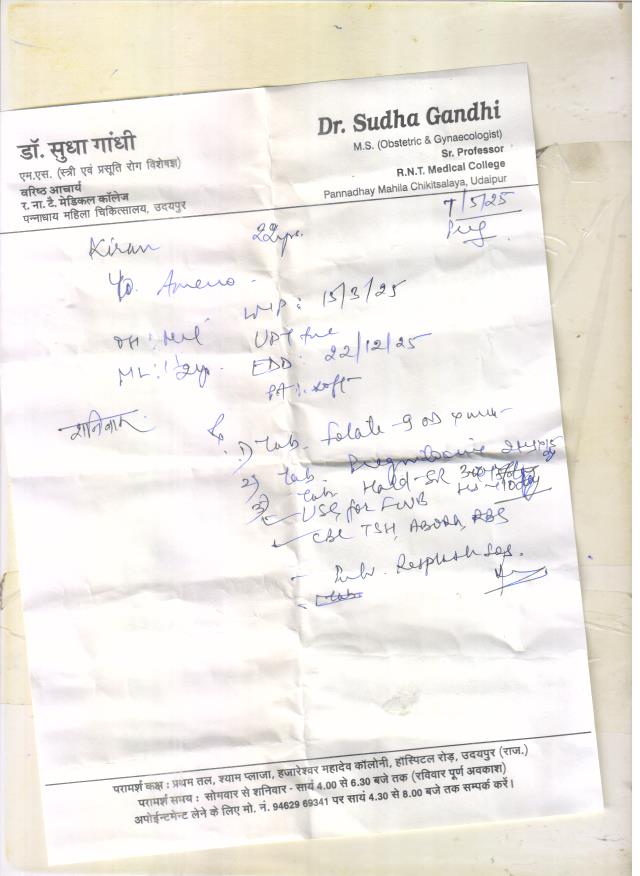 डॉ. सुधा गांधी
एम.एस. (स्त्री एवं प्रसूति रोग विशेषज्ञ)
वरिष्ठ आचार्य
र. ना. टै. मेडिकल कॉलेज
पन्नाधाय महिला चिकित्सालय, उदयपुर
Dr. Sudha Gandhi
M.S. (Obstetric & Gynaecologist)
Sr. Professor
R.N.T. Medical College
Pannadhay Mahila Chikitsalaya, Udaipur
7/5/25
Kiran 22yrs.
LMP: 15/3/25
UPT +ve
ML: 1 1/2 yr. EDD: 22/12/25
PA: soft
शनिवार
1) Tab. Folate
2) Tab.
3) Tab. Hold-SR
USG for FWB
CBC TSH, ABORh, RBS
परामर्श कक्ष : प्रथम तल, श्याम प्लाजा, हजारेश्वर महादेव कॉलोनी, हॉस्पिटल रोड़, उदयपुर (राज.)
परामर्श समय : सोमवार से शनिवार - सायं 4.00 से 6.30 बजे तक (रविवार पूर्ण अवकाश)
अपोईन्टमेन्ट लेने के लिए मो. नं. 94629 69341 पर सायं 4.30 से 8.00 बजे तक सम्पर्क करें।